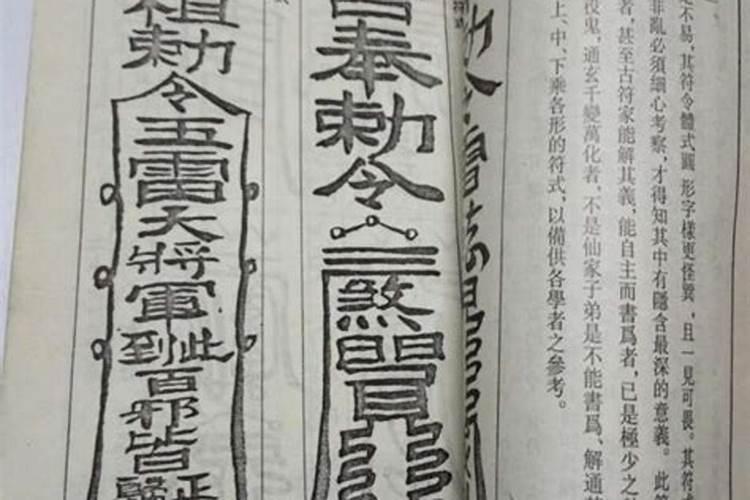 之不易,其符令體式圓 形字樣更怪異,且一見可畏。其符
非亂必須細心考察,才得知其中有隱含最深的意義。此
者,甚至古符家能解其義,能自主而書爲者,已是極少之
役鬼,通玄千變萬化者,不是仙家子弟是不能書爲、解通
上、中、下乘各形的符式,以備供各學者之參考。
奉勅令三煞
祖勅令五雷天將軍到此百邪皆歸正